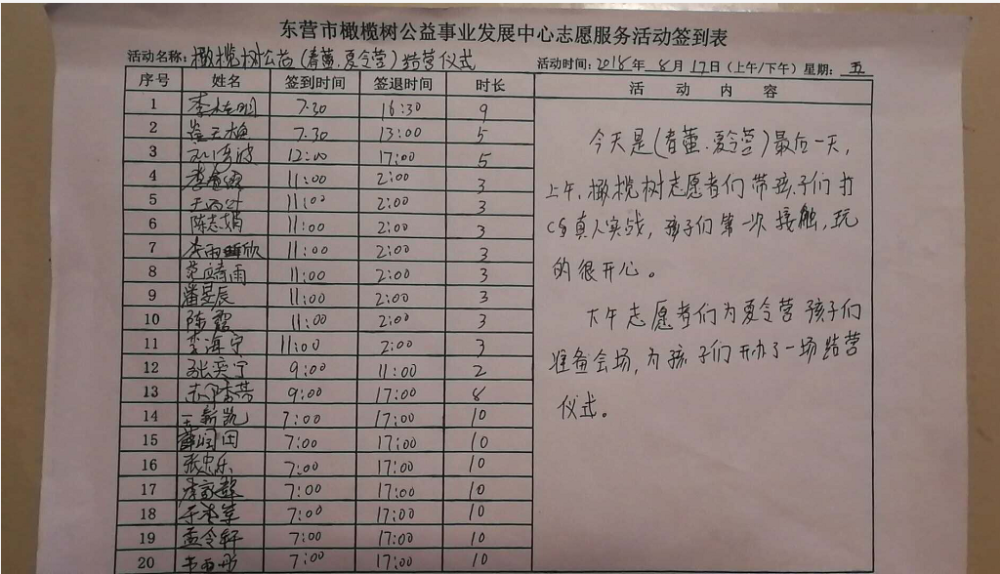 东营市橄榄树公益事业发展中心志愿服务活动签到表
活动名称: 橄榄树公益(青蕾.夏令营)结营仪式 活动时间: 2018年 8月 17日(上午/下午) 星期: 五
序号 姓名 签到时间 签退时间 时长 活动内容
1 7:30 16:30 9
2 7:30 13:00 5
3 12:00 17:00 5
4 11:00 2:00 3
5 11:00 2:00 3
6 陈志娟 11:00 2:00 3
7 11:00 2:00 3
8 11:00 2:00 3
9 潘昱辰 11:00 2:00 3
10 11:00 2:00 3
11 李海宁 11:00 2:00 3
12 张奕宁 9:00 11:00 2
13 9:00 17:00 8
14 王新凯 7:00 17:00 10
15 薛润田 7:00 17:00 10
16 张忠乐 7:00 17:00 10
17 7:00 17:00 10
18 7:00 17:00 10
19 孟令轩 7:00 17:00 10
20 7:00 17:00 10
今天是(青蕾.夏令营)最后一天,
上午,橄榄树志愿者们带孩子们打
CS真人实战,孩子们第一次接触,玩
的很开心。
下午志愿者们为夏令营孩子们
准备会场,为孩子们开办了一场结营
仪式。